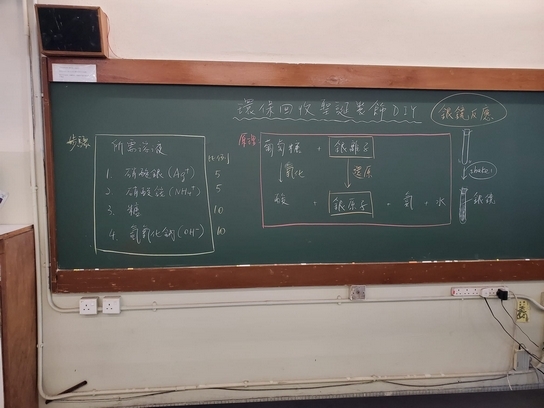 環保回收聖誕裝飾DIY
銀鏡反應
步驟
所需溶液
比例
1. 硝酸銀 (Ag⁺) 5
2. 硝酸銨 (NH₄⁺) 5
3. 糖 10
4. 氫氧化鈉 (OH⁻) 10
原理
葡萄糖 + 銀離子
↓氧化 ↓還原
酸 + 銀原子 + 氨 + 水
shake!
銀鏡